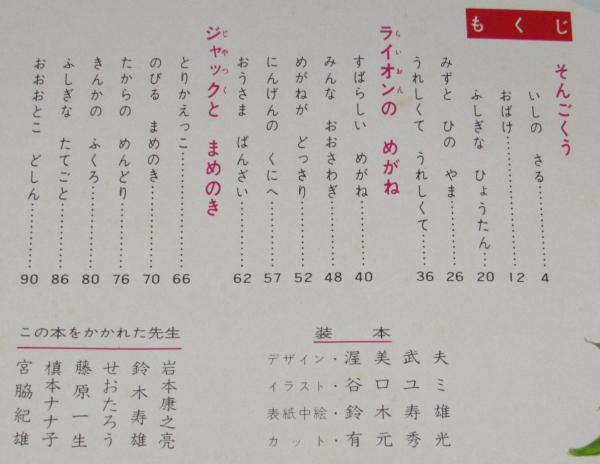 もくじ
そんごくう
いしの さる…………4
おばけ…………12
ふしぎな ひょうたん…………20
みずと ひの やま…………26
うれしくて うれしくて…………36
ライオンの めがね
らいおん
すばらしい めがね…………40
みんな おおさわぎ…………48
めがねが どっさり…………52
にんげんの くにへ…………57
おうさま ばんざい…………62
ジャックと まめのき
じゃっく
とりかえっこ…………66
のびる まめのき…………70
たからの めんどり…………76
きんかの ふくろ…………80
ふしぎな たてごと…………86
おおおとこ どしん…………90
装本
デザイン・渥美武夫
イラスト・谷口ユミ
表紙中絵・鈴木寿雄
カット・有元秀光
この本をかかれた先生
岩本康之亮
鈴木寿雄
せおたろう
藤原一生
槙本ナナ子
宮脇紀雄